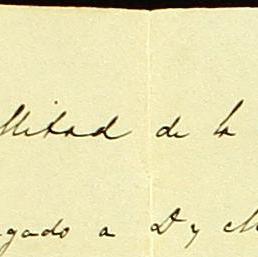 Mitad de la
gado a D y M